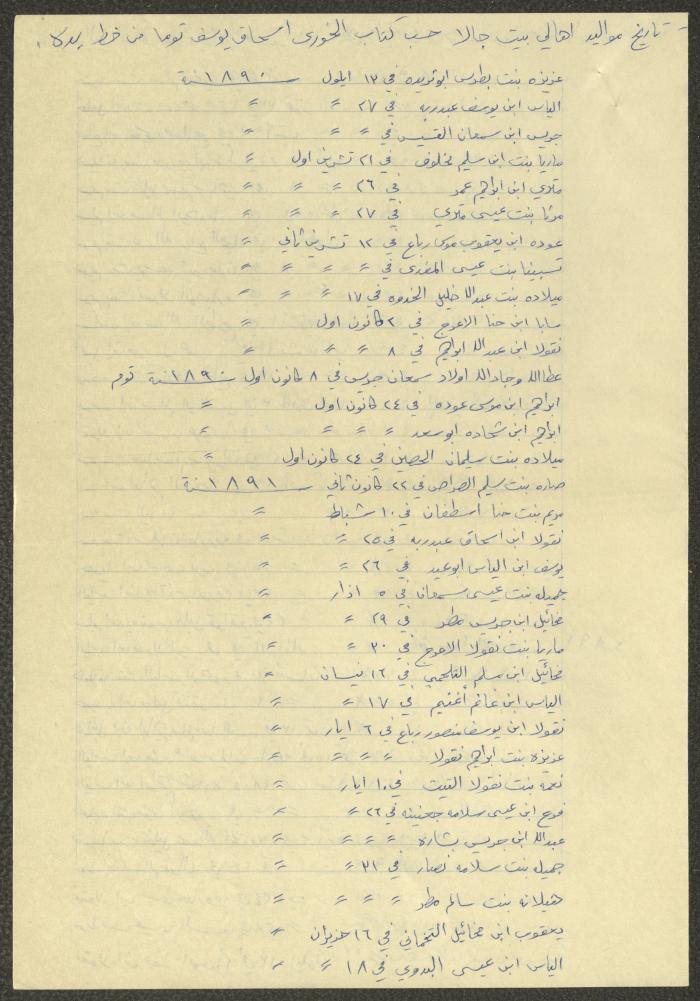 تاريخ مواليد اهالي بيت جالا حسب كتاب الخوري اسحاق يوسف توما من خط يده
عزيزه بنت بطرس ابو زيده في ١٣ ايلول سنة ١٨٩٠
الياس ابن يوسف عبدربه في ٢٧ 〃 〃
جريس ابن سمعان القسيس في 〃 〃 〃
ماريا بنت ابن سليم مخلوف في ٢١ تشرين اول 〃
متري ابن ابراهيم في ٢٦ 〃 〃 〃
مرتا بنت عيسى متري في ٢٧ 〃 〃 〃
عوده ابن يعقوب موسى رباع في ١٢ تشرين ثاني 〃
بنت عيسى في 〃 〃 〃 〃
ميلاده بنت عبدالله خليل في ١٧ 〃 〃 〃
سابا ابن حنا الاعرج في ٢ كانون اول 〃
نقولا ابن عبدالله ابراهيم في ٨ 〃 〃 〃
عطالله وجادالله اولاد سمعان جريس في ٨ كانون اول سنة ١٨٩٠ توم
ابراهيم ابن موسى عوده في ٢٤ كانون اول 〃
ابراهيم ابن شحاده ابو سعد 〃 〃 〃 〃
ميلاده بنت سليمان الحصين في ٢٤ كانون اول 〃
ساره بنت سليم الصراص في ٢٢ كانون ثاني سنة ١٨٩١
مريم بنت حنا اسطفان في ١٠ شباط 〃
نقولا ابن اسحاق عبدربه في ٢٥ 〃 〃
يوسف ابن الياس ابو عيد في ٢٦ 〃 〃
جميله بنت عيسى سمعان في ٥ اذار 〃
مخائيل ابن جريس مطر في ٢٩ 〃 〃
ماريا بنت نقولا الاعرج في ٣٠ 〃 〃
مخائيل ابن سلم في ١٦ نيسان 〃
الياس ابن غانم اغنيم في ١٧ 〃 〃
نقولا ابن يوسف منصور رباع في ٦ ايار 〃
عزيزه بنت ابراهيم نقولا 〃 〃 〃 〃
نعمه بنت نقولا التيت في ١٠ ايار 〃
فرح ابن عيسى سلامه جعنينه في ٢٦ 〃 〃
عبدالله ابن جريس بشاره 〃 〃 〃 〃
جميله بنت سلامه نصار في ٣١ 〃 〃
هيلانه بنت سالم مطر 〃 〃 〃 〃
يعقوب ابن مخائيل في ١٦ حزيران 〃
الياس ابن عيسى البدوي في ١٨ 〃 〃